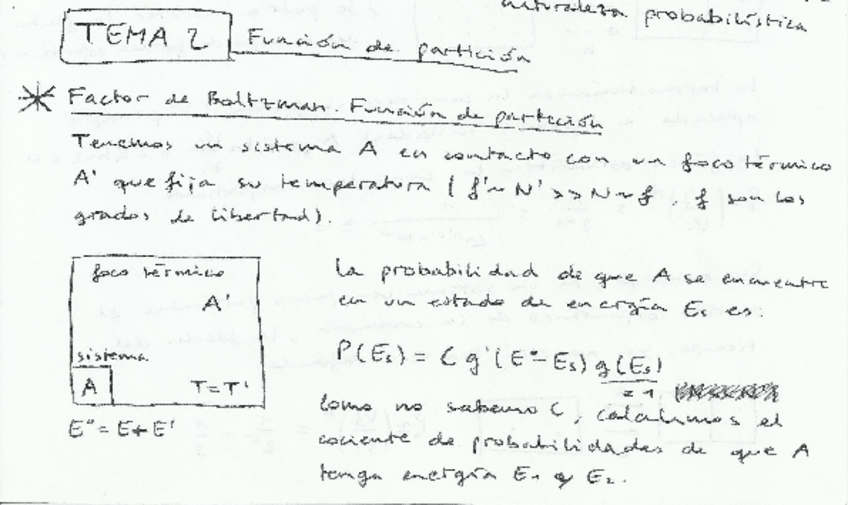 naturaleza probabilística
TEMA 2 Función de partición
* Factor de Boltzman. Función de partición
Tenemos un sistema A en contacto con un foco térmico
A' que fija su temperatura ( f'~ N' >> N ~ f . f son los
grados de libertad).
foco térmico
A'
sistema
A T=T'
E°= E+E'
La probabilidad de que A se encuentre
en un estado de energía Es es:
P(Es) = C g'(E°-Es) g(Es)
=1
Como no sabemo C, calculmos el
cociente de probabilidades de que A
tenga energía E1 y E2.